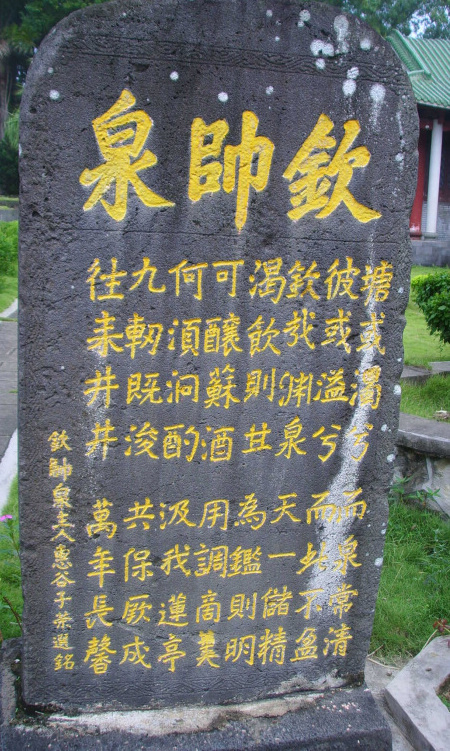 欽帥泉
塘或濁兮而泉常清
彼或溢兮而此不盈
欽哉渊泉天一儲精
渴飲則甘為鑑則明
可釀蘇酒用調商羹
何須泂酌汲我蓮亭
九軔既浚共保厥成
往来井井萬年長馨
欽帥泉主人惠谷子榮選銘